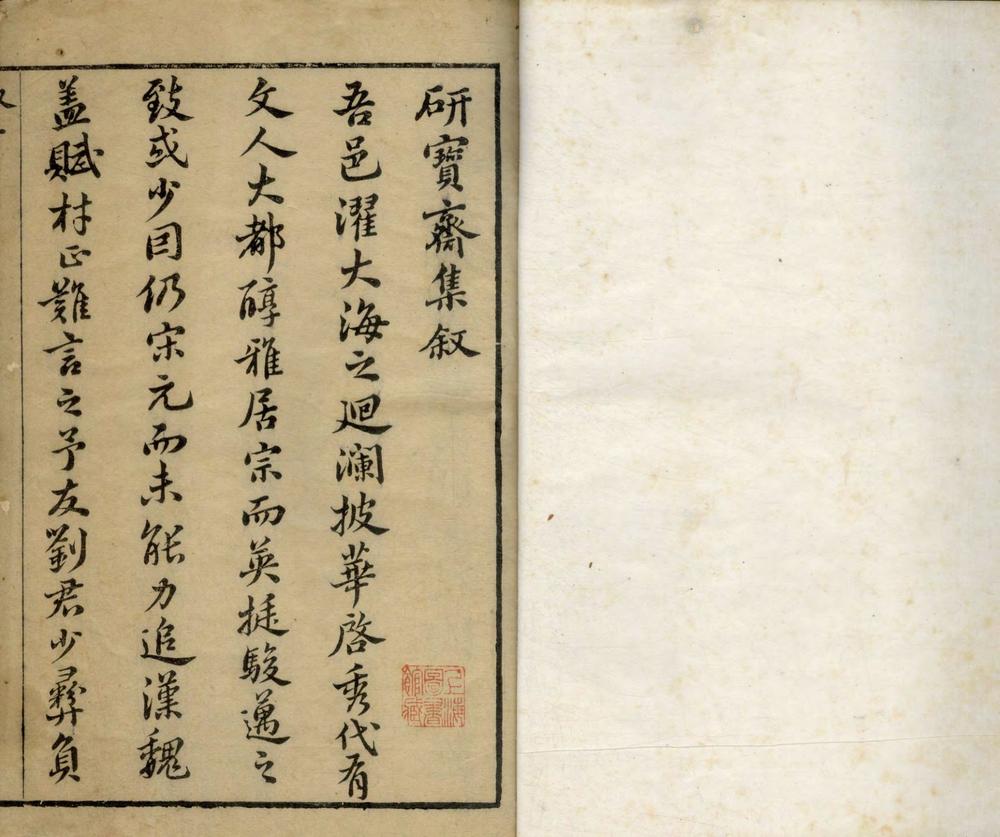 研寶齋集叙
吾邑濯大海之廻瀾披華啓秀代有
文人大都醇雅居宗而英挺駿邁之
致或少因仍宋元而未能力追漢魏
盖賦材正難言之予友劉君少彞負
上海圖書館藏